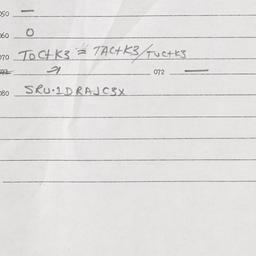 050 —
060 0
070 TOCtK3 = TACtK3/TUCtK3
072 —
080 SRU·1DRAJC3X